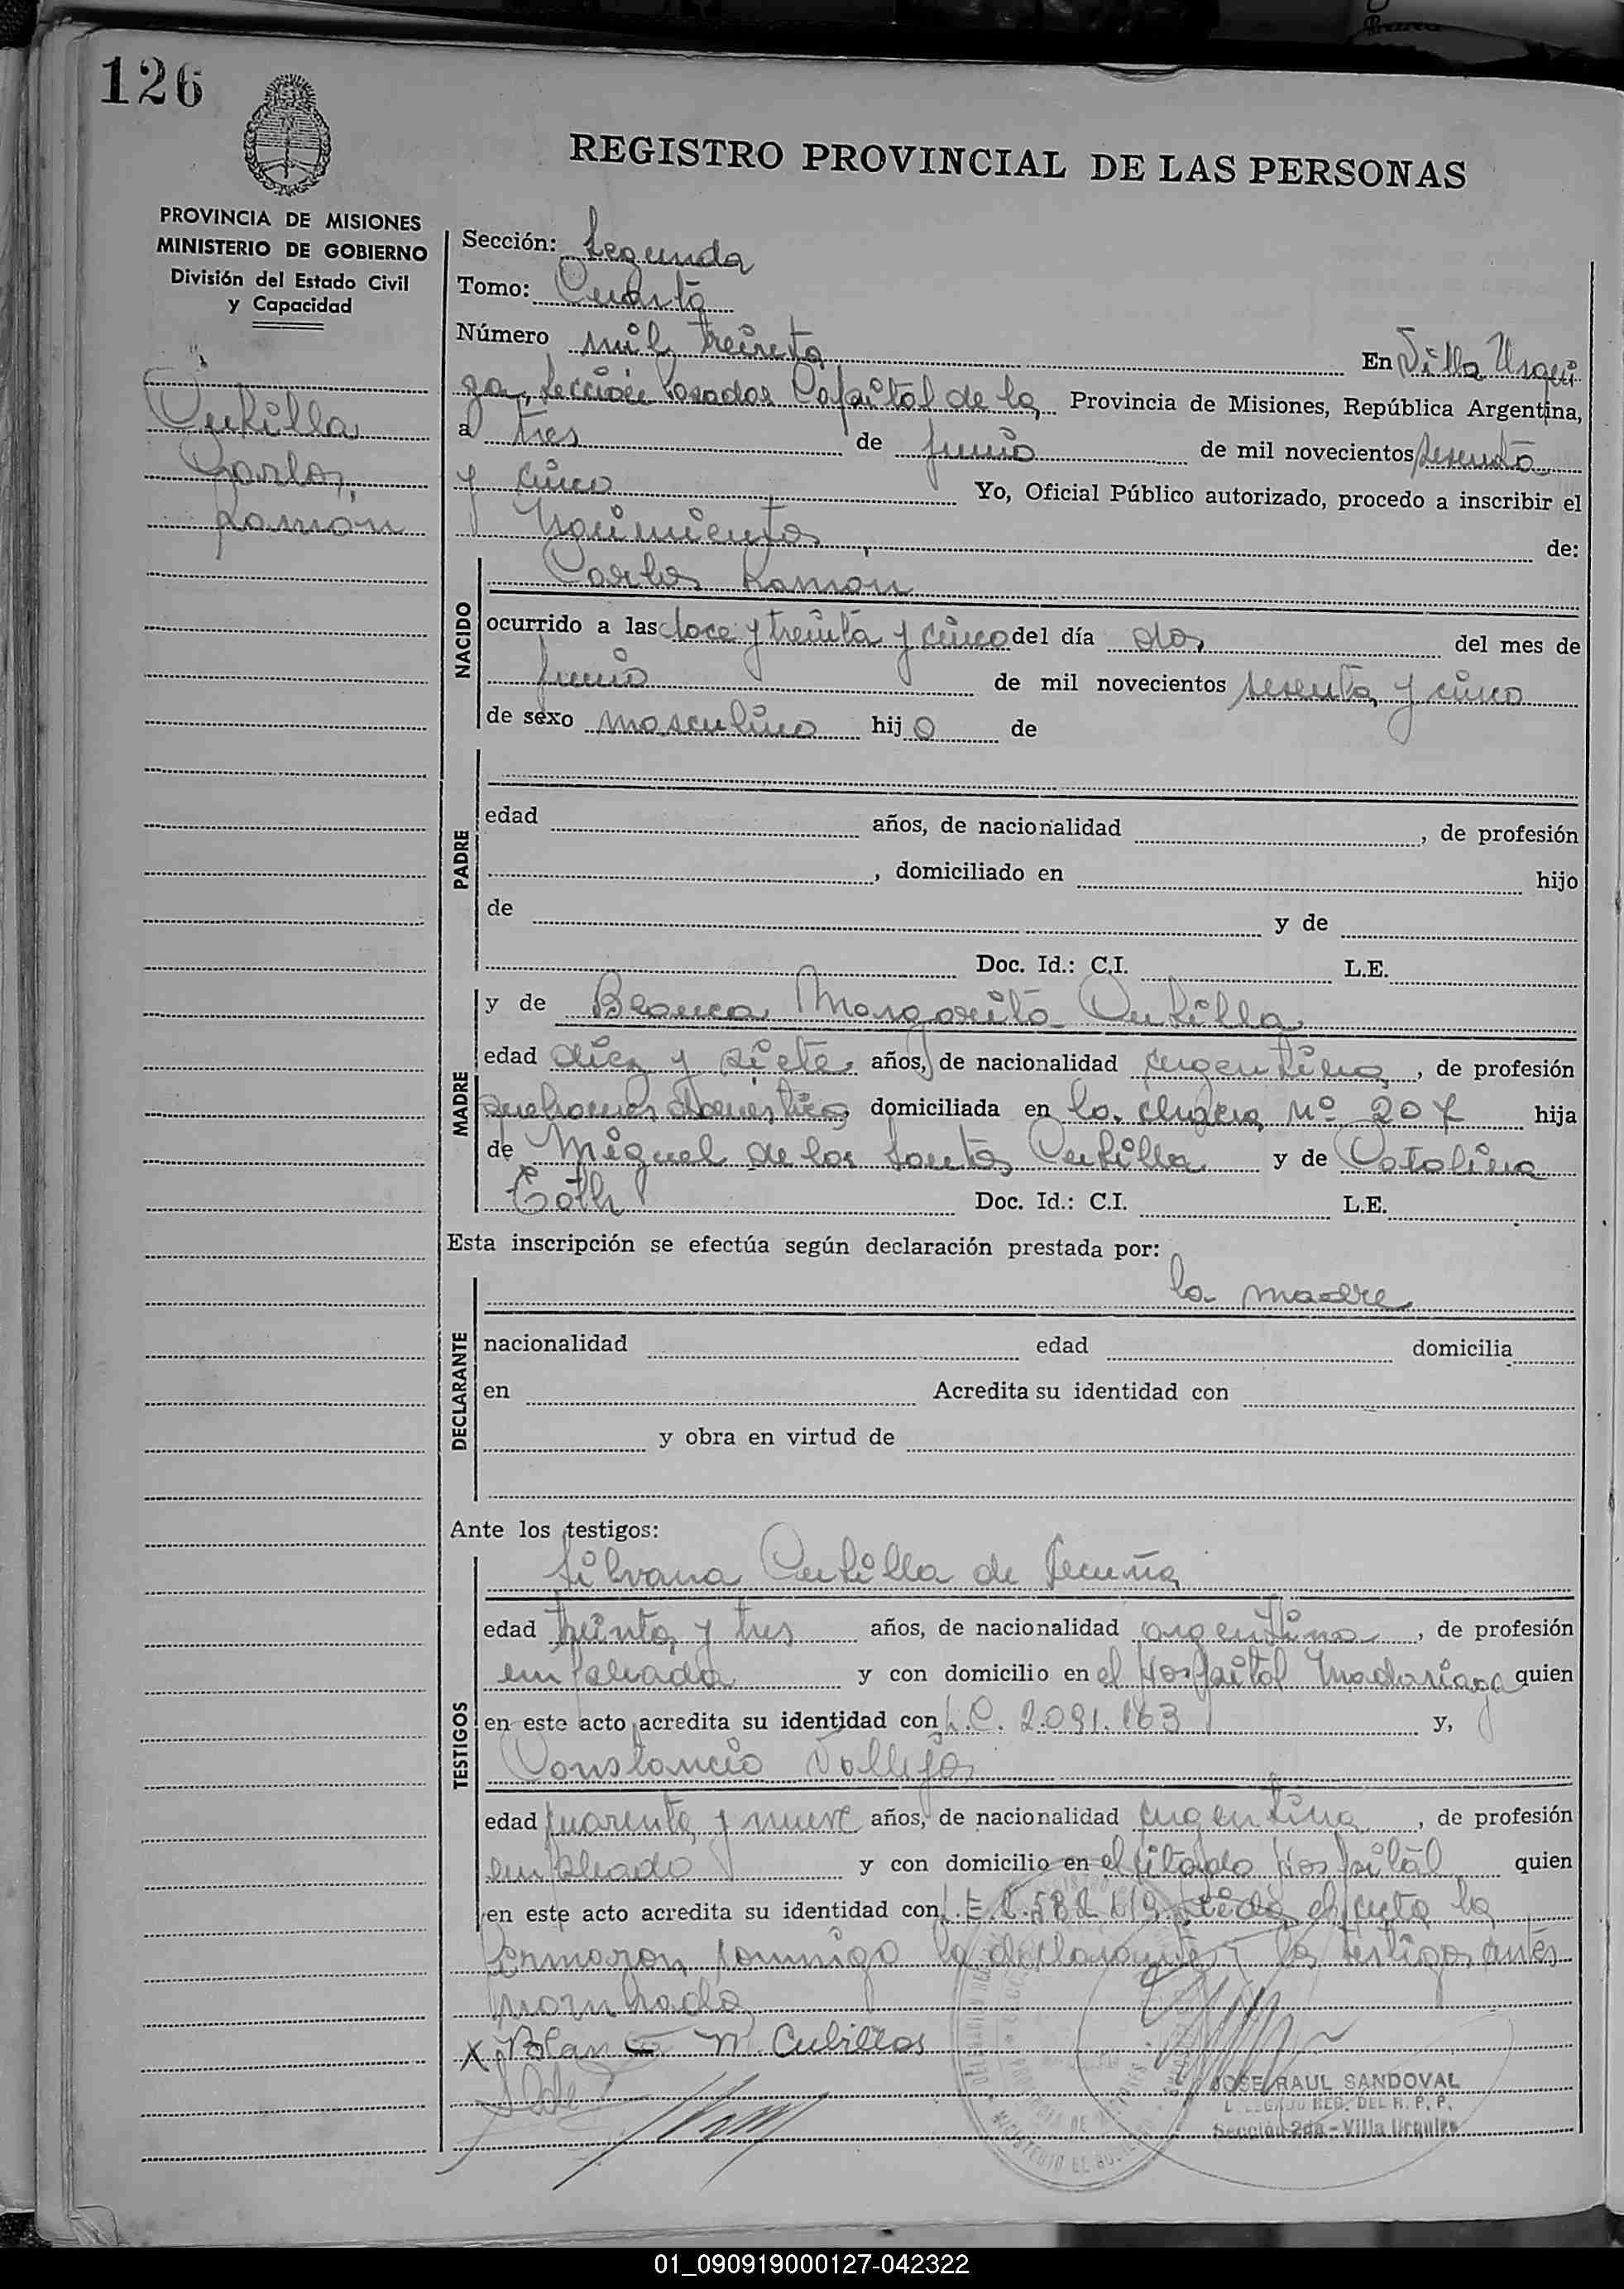 126
REGISTRO PROVINCIAL DE LAS PERSONAS
PROVINCIA DE MISIONES
MINISTERIO DE GOBIERNO
División del Estado Civil
y Capacidad
Cubilla
Carlos
Ramón
Sección: Segunda
Tomo: Cuarto
Número mil treinta En Villa Urqui
za, Sección Posadas Capital de la Provincia de Misiones, República Argentina,
a tres de junio de mil novecientos sesenta
y cinco Yo, Oficial Público autorizado, procedo a inscribir el
Nacimiento de:
NACIDO
Carlos Ramón
ocurrido a las doce y treinta y cinco del día dos del mes de
junio de mil novecientos sesenta y cinco
de sexo masculino hijo de
PADRE
edad años, de nacionalidad , de profesión
, domiciliado en hijo
de y de
Doc. Id.: C.I. L.E.
MADRE
y de Blanca Margarita Cubilla
edad diez y siete años, de nacionalidad argentina, de profesión
quehaceres domésticos domiciliada en la chacra Nº 207 hija
de Miguel de los Santos Cubilla y de Catalina
Doc. Id.: C.I. L.E.
Esta inscripción se efectúa según declaración prestada por:
DECLARANTE
la madre
nacionalidad edad domicilia
en Acredita su identidad con
y obra en virtud de
Ante los testigos:
TESTIGOS
Silvana Cubilla de
edad treinta y tres años, de nacionalidad argentina, de profesión
empleada y con domicilio en el Hospital Madariaga quien
en este acto acredita su identidad con L.C. 2.091.163 y,
Constancio Vallejos
edad cuarenta y nueve años, de nacionalidad argentina, de profesión
empleado y con domicilio en el citado Hospital quien
en este acto acredita su identidad con L.E. leída el acta la
firmaron conmigo la declarante y los testigos antes
nombrados
X Blanca M. Cubillas
JOSE RAUL SANDOVAL
REG. DEL R. P. P.
Sección 2da - Villa Urquiza
01_090919000127-042322